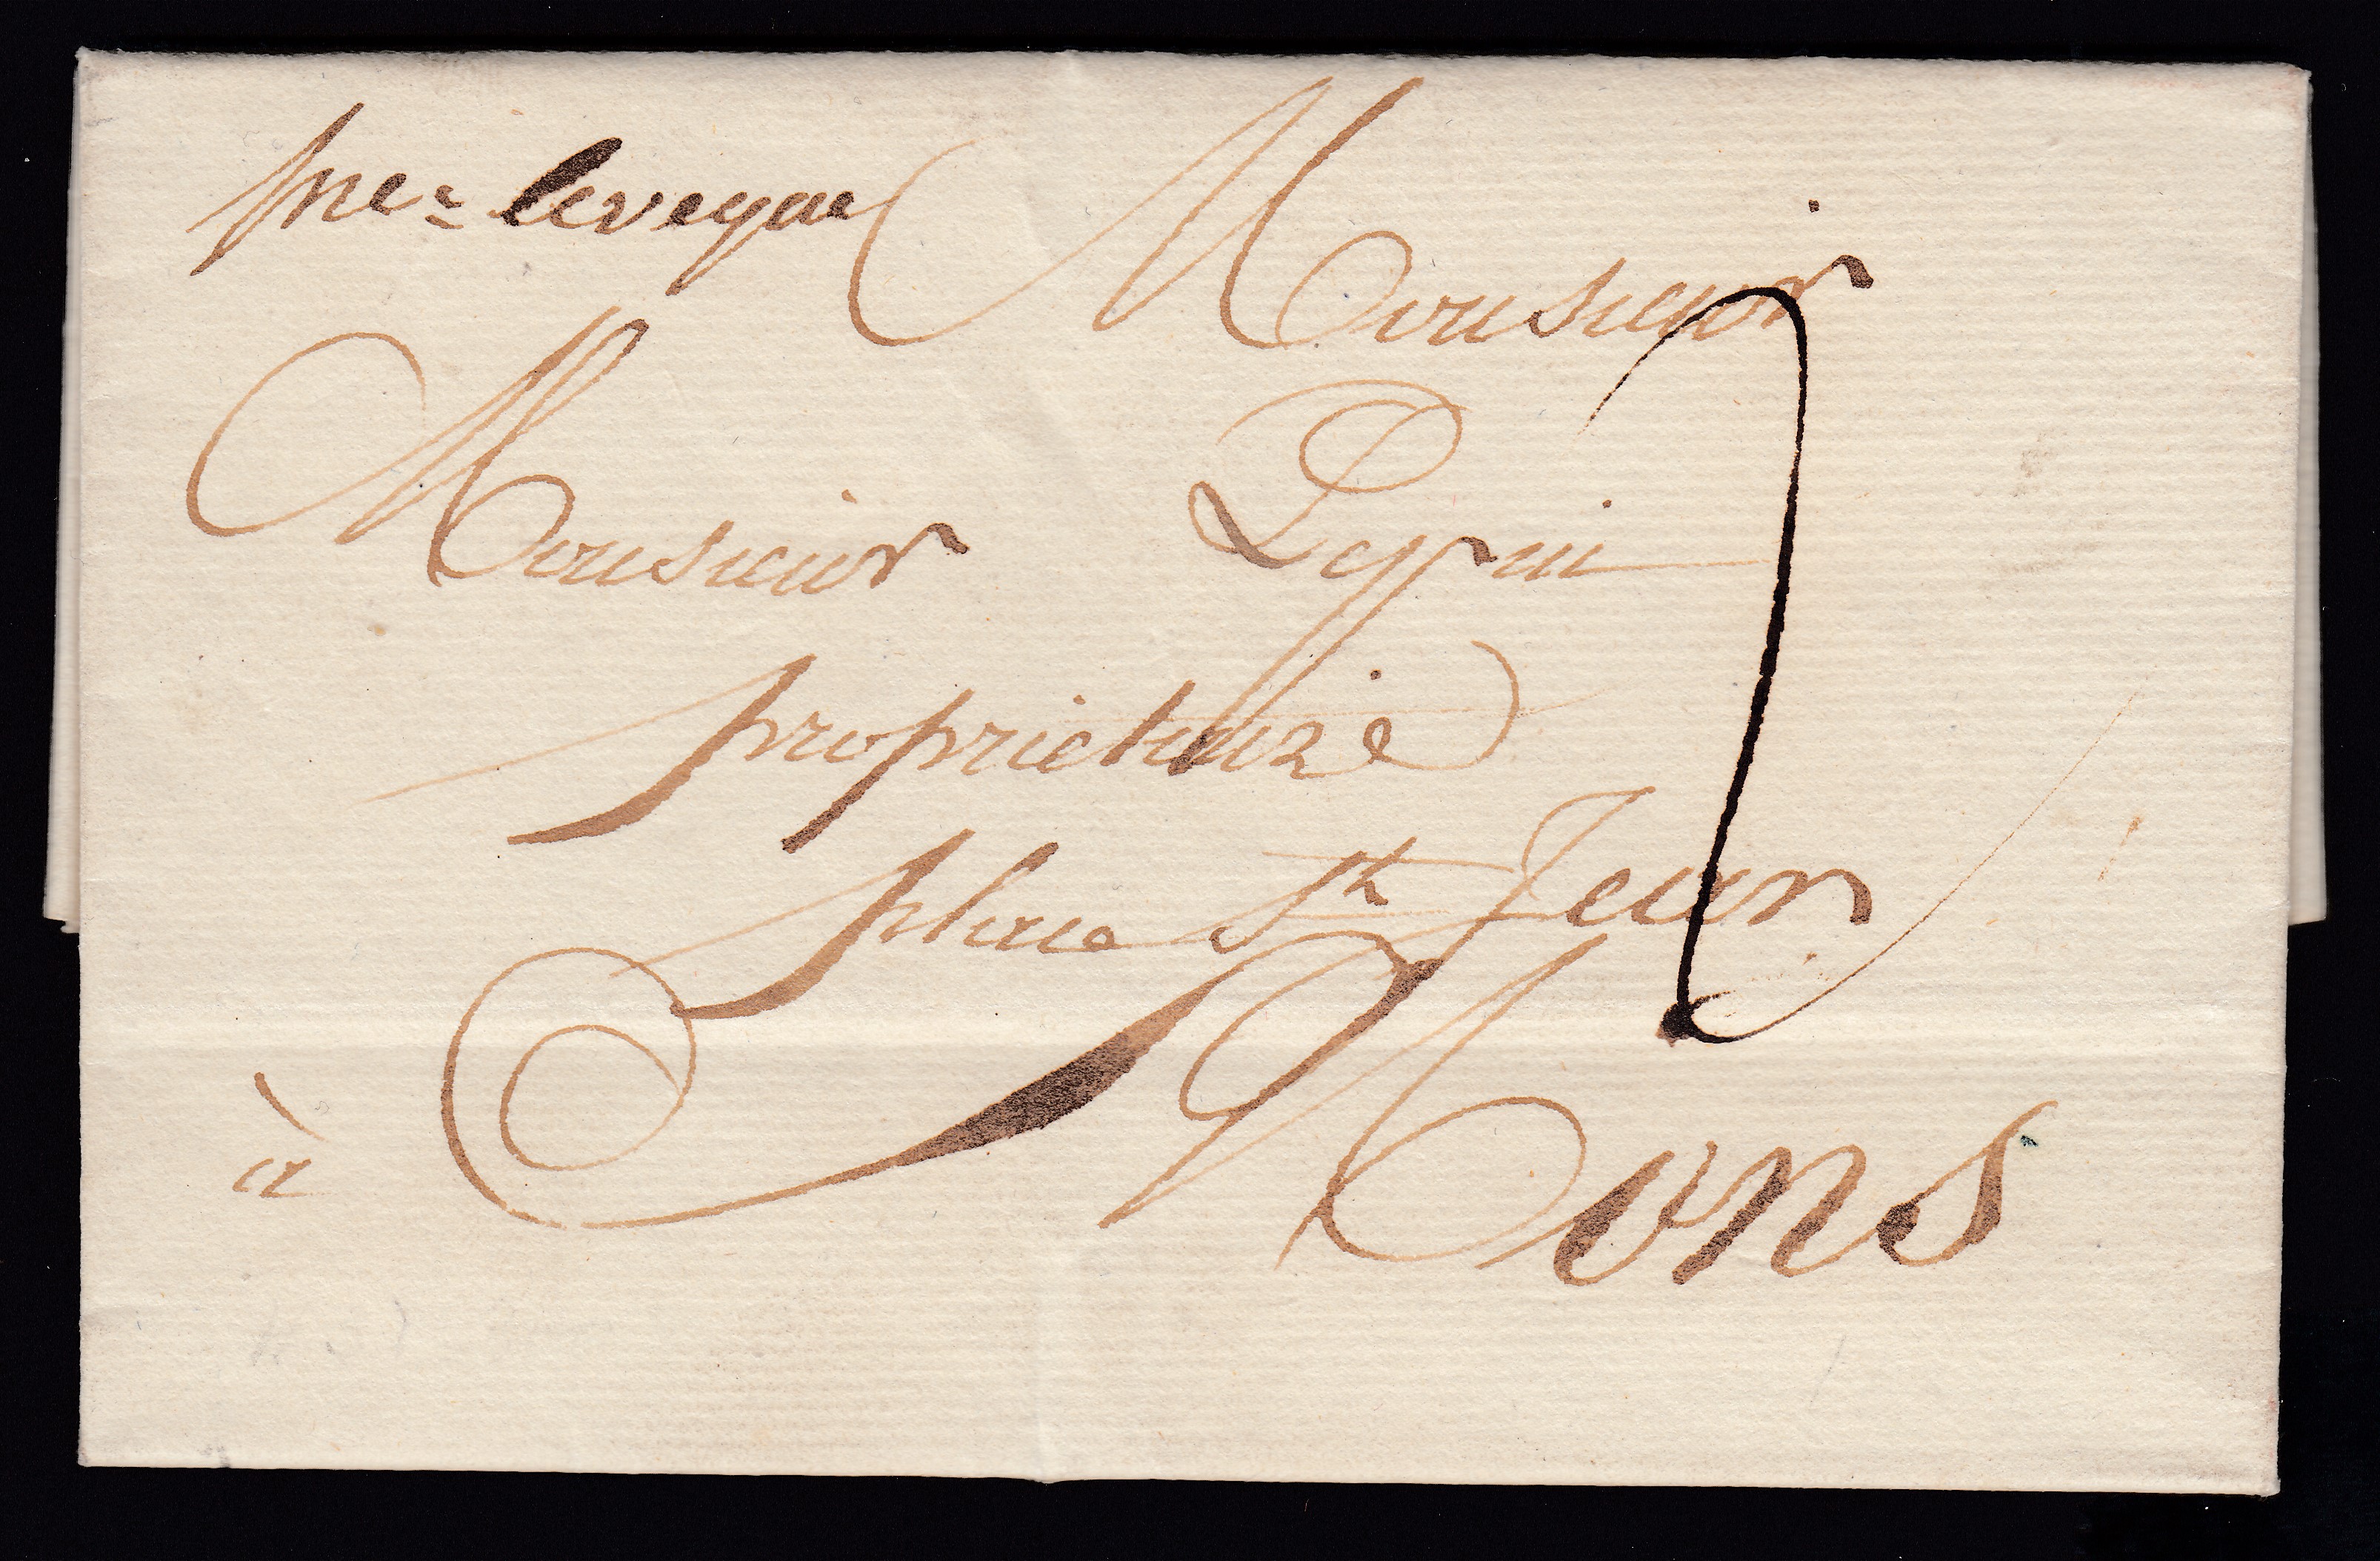 leveque Monsieur
Monsieur
proprietaire
place St Jean
à Mons